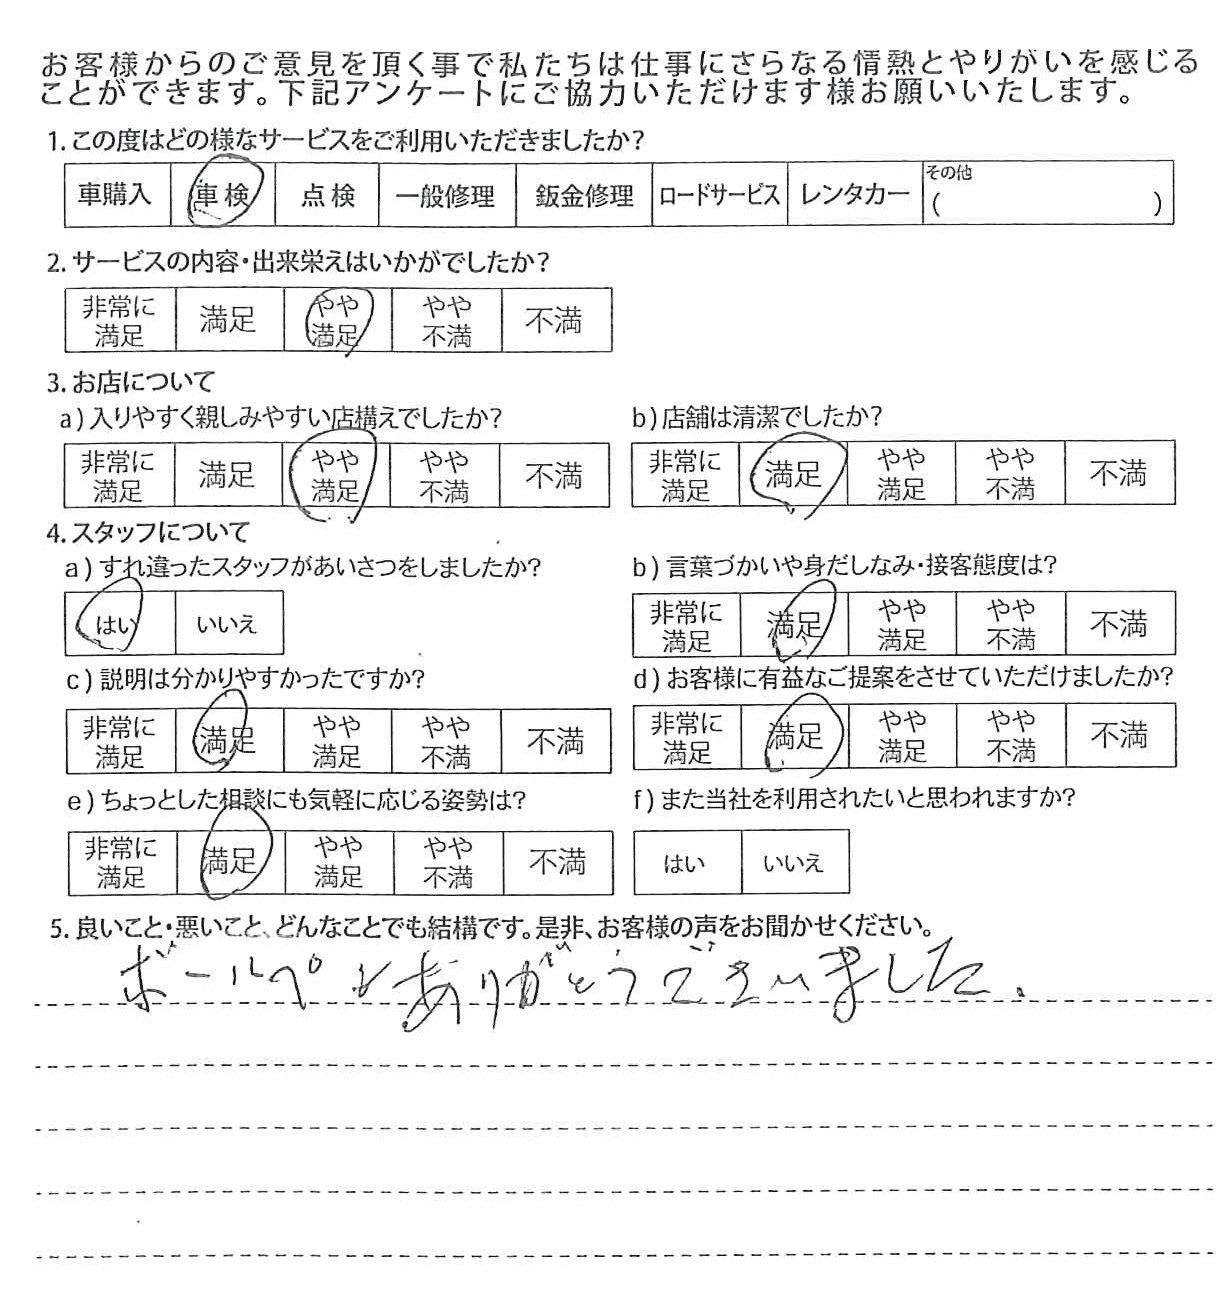 お客様からのご意見を頂く事で私たちは仕事にさらなる情熱とやりがいを感じる
ことができます。下記アンケートにご協力いただけます様お願いいたします。
1. この度はどの様なサービスをご利用いただきましたか?
車購入 車検 点検 一般修理 鈑金修理 ロードサービス レンタカー その他 ( )
2. サービスの内容・出来栄えはいかがでしたか?
非常に満足 満足 やや満足 やや不満 不満
3. お店について
a) 入りやすく親しみやすい店構えでしたか? b) 店舗は清潔でしたか?
非常に満足 満足 やや満足 やや不満 不満 非常に満足 満足 やや満足 やや不満 不満
4. スタッフについて
a) すれ違ったスタッフがあいさつをしましたか? b) 言葉づかいや身だしなみ・接客態度は?
はい いいえ 非常に満足 満足 やや満足 やや不満 不満
c) 説明は分かりやすかったですか? d) お客様に有益なご提案をさせていただけましたか?
非常に満足 満足 やや満足 やや不満 不満 非常に満足 満足 やや満足 やや不満 不満
e) ちょっとした相談にも気軽に応じる姿勢は? f) また当社を利用されたいと思われますか?
非常に満足 満足 やや満足 やや不満 不満 はい いいえ
5. 良いこと・悪いこと、どんなことでも結構です。是非、お客様の声をお聞かせください。
ボールペンありがとうございました.